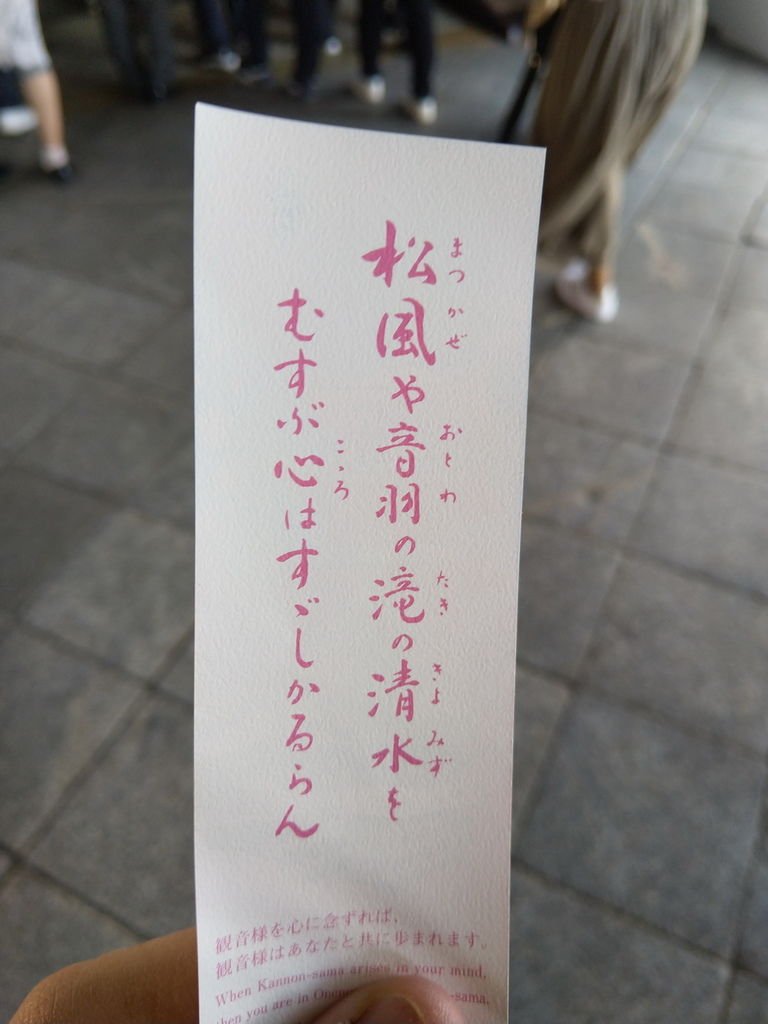 松風や音羽の滝の清水を
まつかぜ おとわ たき きよみず
むすぶ心はすゞしかるらん
こゝろ
観音様を心に念ずれば、
観音様はあなたと共に歩まれます。
When Kannon-sama arises in your mind,
then you are in -sama.